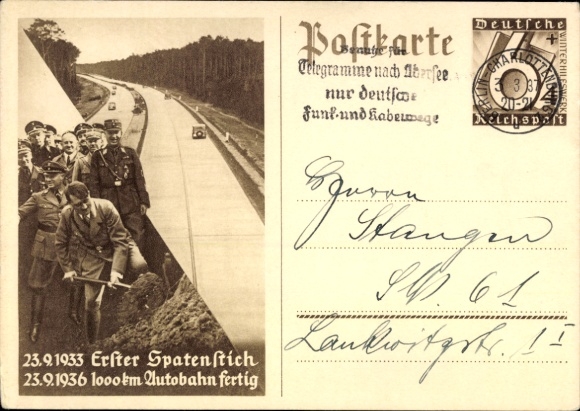 Postkarte
Deutsche
WINTERHILFSWERK
Reichspost
BERLIN-CHARLOTTENBURG
3.37
20-21
Benutzt für
Telegramme nach Übersee
nur deutsche
Funk-und Kabelwege
Herrn
Stangen
SW. 61
Lankwitzstr. 11
23.9.1933 Erster Spatenstich
23.9.1936 1000km Autobahn fertig